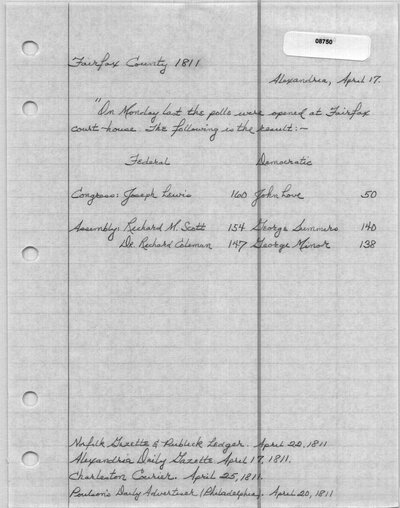 08750
Fairfax County 1811
Alexandria, April 17.
"On Monday last the polls were opened at Fairfax
court-house. The following is the result:-
Federal Democratic
Congress: Joseph Lewis 160 John Love 50
Assembly: Richard M. Scott 154 George Summers 140
Dr. Richard Coleman 147 George Minor 138
Norfolk Gazette & Publick Ledger. April 22, 1811
Alexandria Daily Gazette. April 17, 1811.
Charleston Courier. April 25, 1811.
Poulson's Daily Advertiser (Philadelphia). April 20, 1811